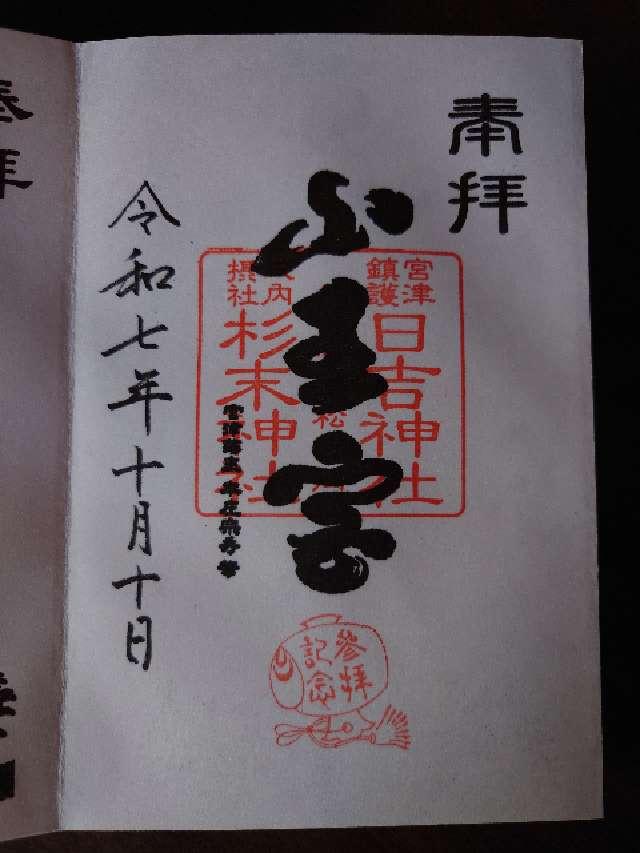 奉拝
山王宮
宮津
鎮護
日吉神社
内
摂社
杉末神社
令和七年十月十日
参拝
記念
奉拝